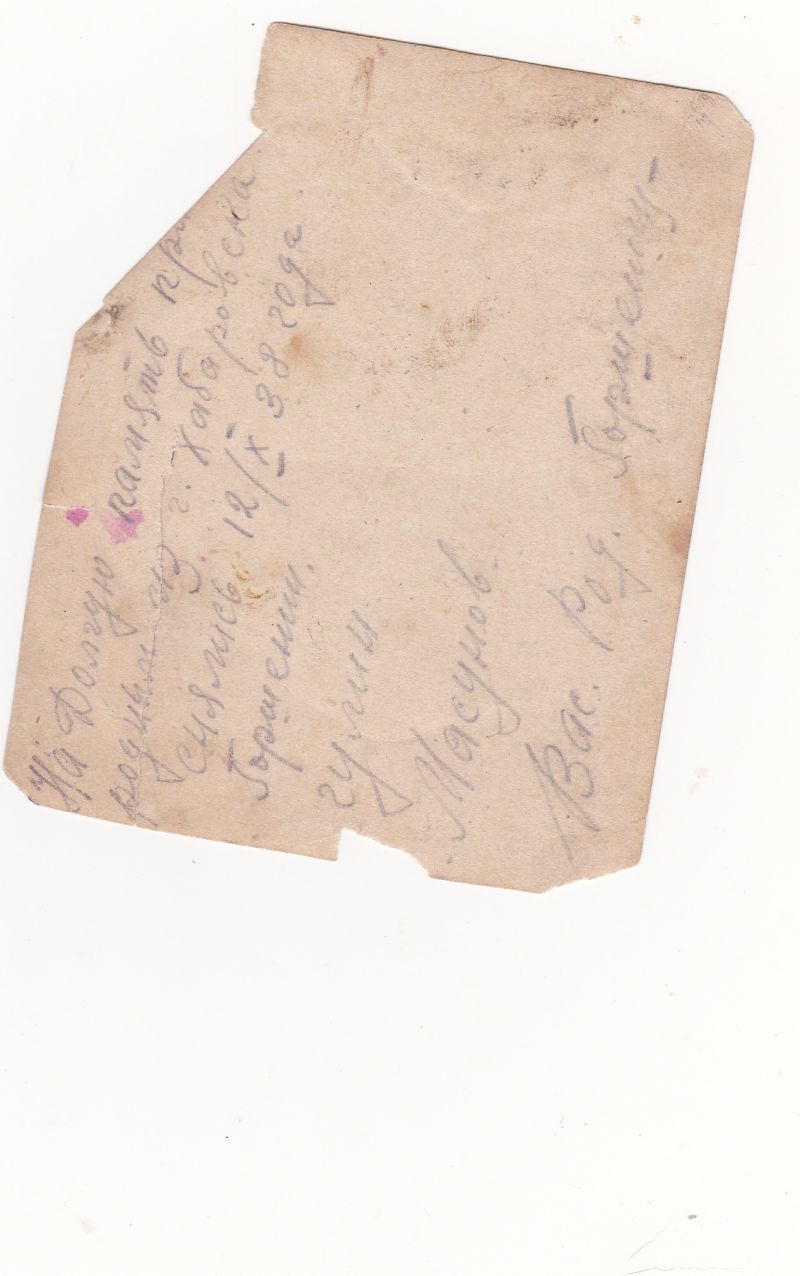 На Долгую память
родным из г. Хабаровска
снялись 12/X 38 года
Горшенин.
гулин
Масунов.
Вас. Род. Горшенин